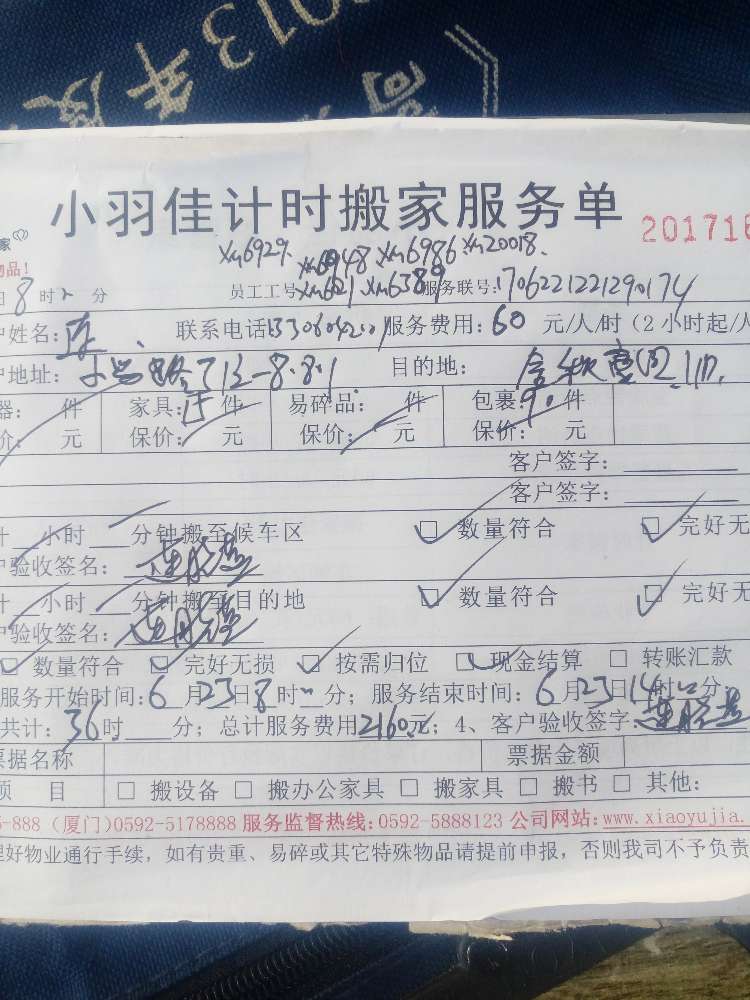 2013年度
小羽佳计时搬家服务单
家
201716
物品!
Xm6929. Xm6948 Xm6986 Xm20018.
日8时 分 员工工号 Xm6389 服务联号:1706221221290174
户姓名:连 联系电话 服务费用:60 元/人/时(2小时起/人
户地址: 8.8.1 目的地:
器: 件 家具: 件 易碎品: 件 包裹:90 件
价: 元 保价: 元 保价: 元 保价: 元
客户签字:
客户签字:
计 小时 分钟搬至候车区 ☑ 数量符合 ☑ 完好无
户验收签名:
计 小时 分钟搬至目的地 ☑ 数量符合 ☑ 完好无
户验收签名:
☑ 数量符合 ☑ 完好无损 ☑ 按需归位 ☑ 现金结算 □ 转账汇款
服务开始时间:6月23日8时 分; 服务结束时间:6月23日14时 分
共计:36时 分; 总计服务费用2160元; 4、客户验收签字:
票据名称 票据金额
项 目 □ 搬设备 □ 搬办公家具 □ 搬家具 □ 搬书 □ 其他:
5-888 (厦门)0592-5178888 服务监督热线:0592-5888123 公司网站:www.xiaoyujia.
理好物业通行手续,如有贵重、易碎或其它特殊物品请提前申报,否则我司不予负责